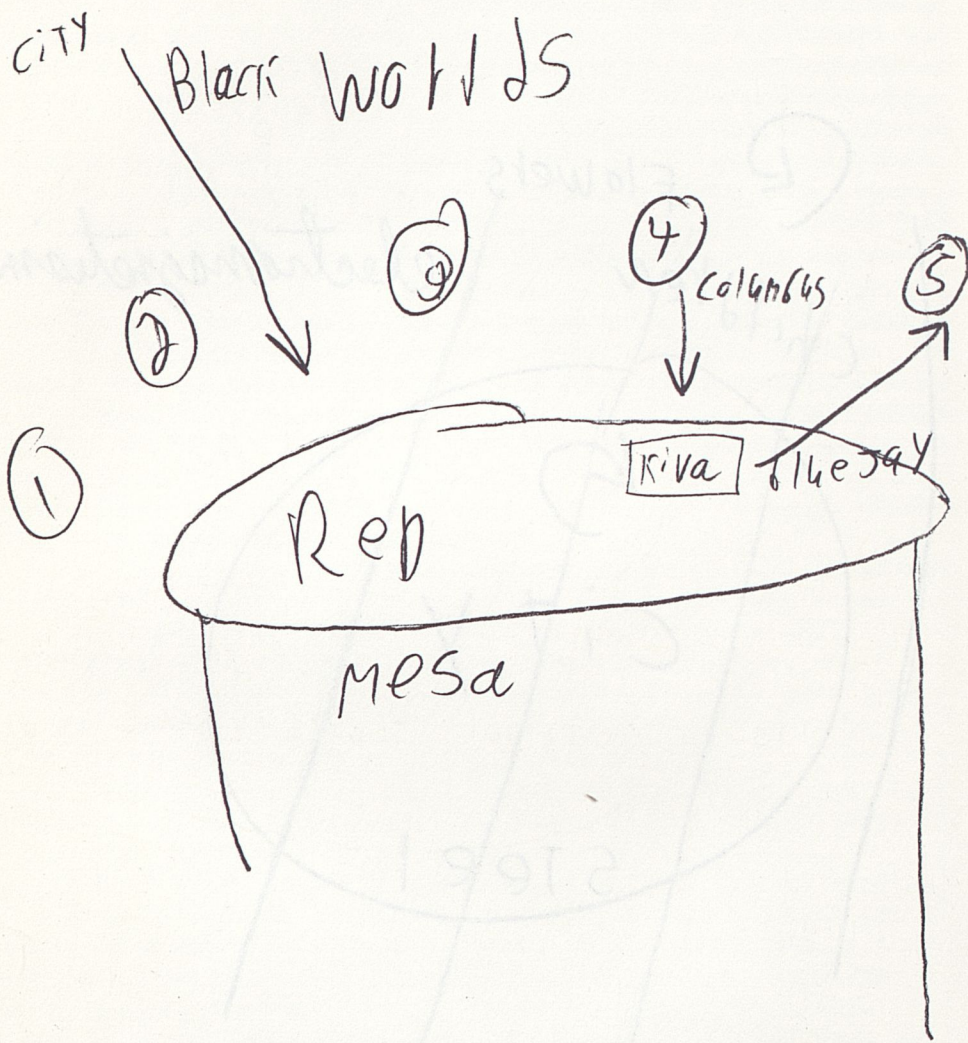 CiTY
Black Worlds
4
columbus
5
2
3
1
Kiva bluejay
Red
Mesa